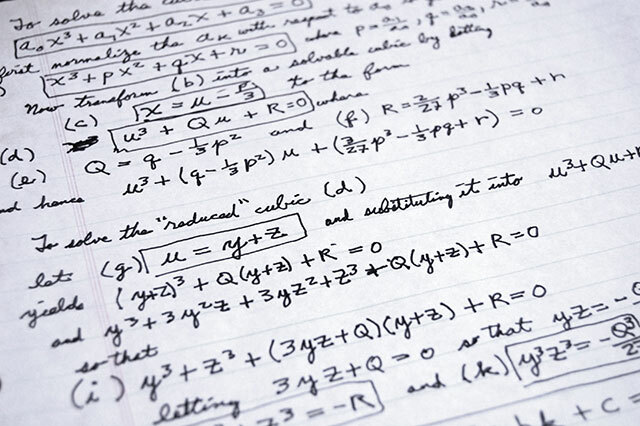 To solve the cubic
a₀x³ + a₁x² + a₂x + a₃ = 0
first normalize the aₖ with respect to a₀
x³ + px² + qx + r = 0 where p = a₁/a₀, q = a₂/a₀, r =
Now transform (b) into a solvable cubic by letting
(c) x = u - p/3 to the form
(d) u³ + Qu + R = 0 where
(e) Q = q - ⅓p² and (f) R = 2/27 p³ - ⅓pq + r
and hence u³ + (q - ⅓p²)u + (2/27 p³ - ⅓pq + r) = 0
To solve the "reduced" cubic (d)
let (g) u = y + z and substituting it into u³ + Qu +
yields (y+z)³ + Q(y+z) + R = 0
and y³ + 3y²z + 3yz² + z³ + Q(y+z) + R = 0
so that
(i) y³ + z³ + (3yz + Q)(y+z) + R = 0
letting 3yz + Q = 0 so that yz = -
z³ = -R and (k) y³z³ = -Q³/
+ C =